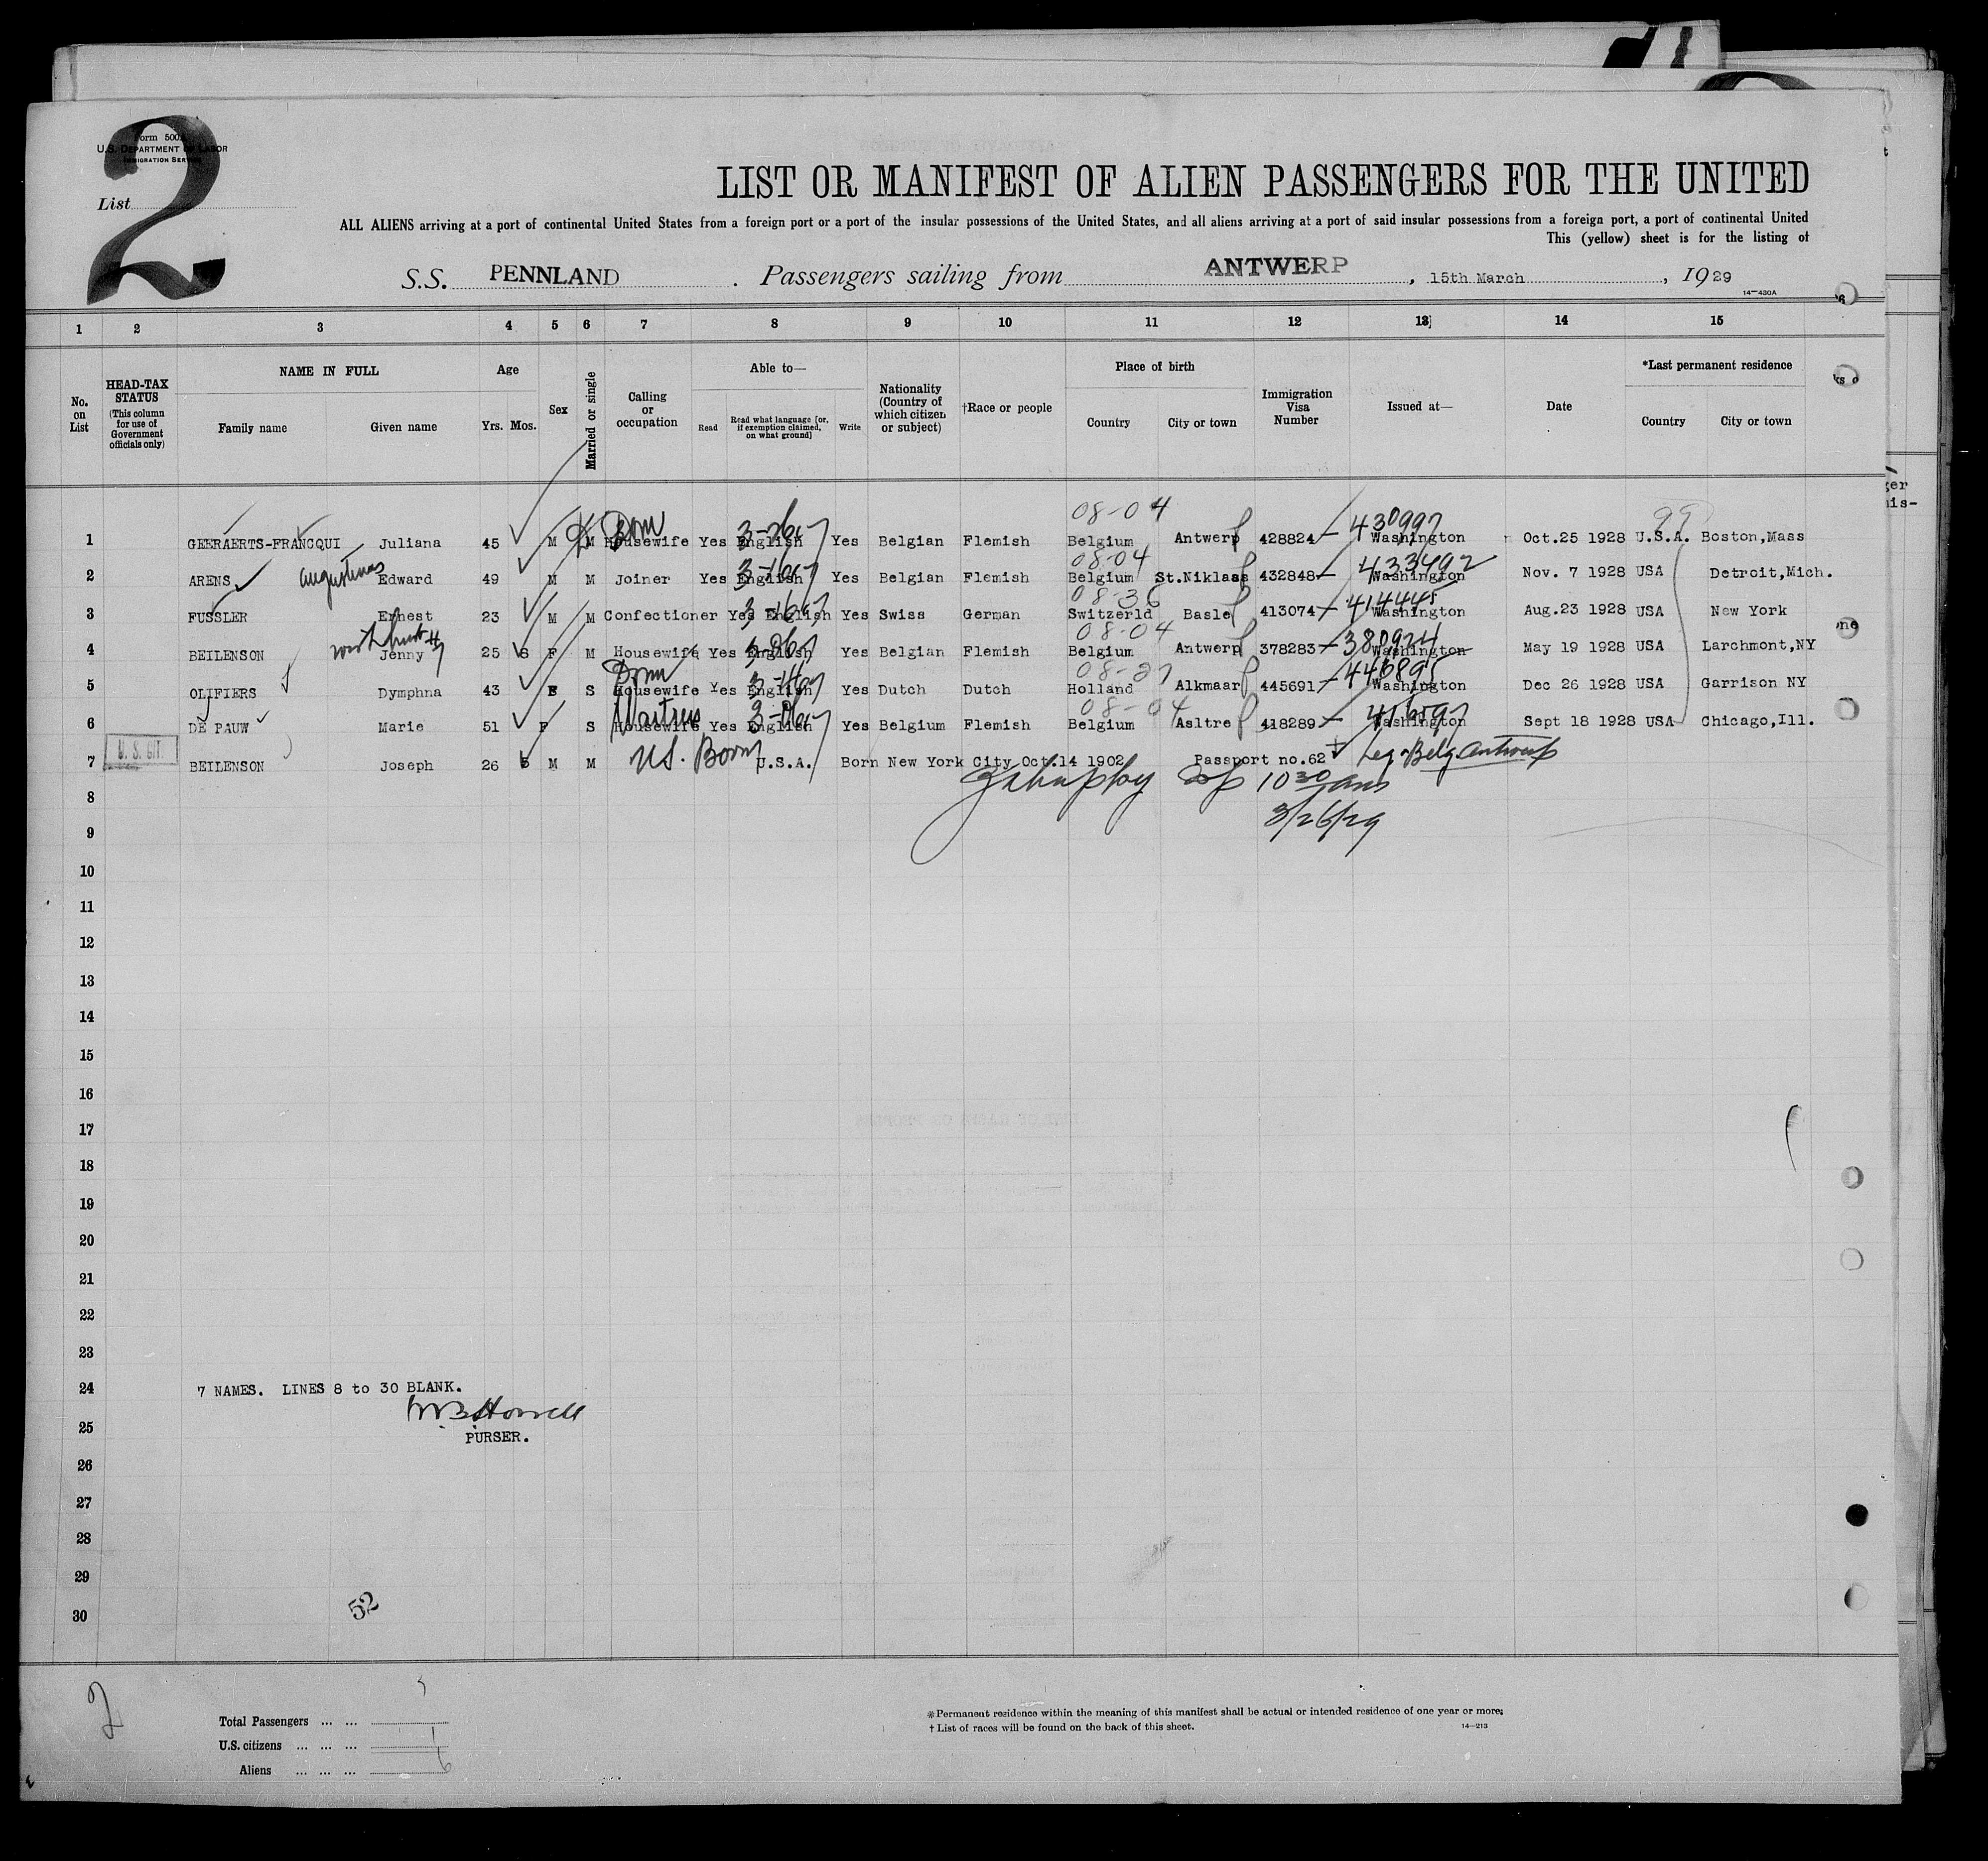 2
Form 500
U.S. DEPARTMENT OF LABOR
IMMIGRATION SERVICE
List
LIST OR MANIFEST OF ALIEN PASSENGERS FOR THE UNITED
ALL ALIENS arriving at a port of continental United States from a foreign port or a port of the insular possessions of the United States, and all aliens arriving at a port of said insular possessions from a foreign port, a port of continental United
This (yellow) sheet is for the listing of
S.S. PENNLAND . Passengers sailing from ANTWERP , 15th March , 1929
14—430A
1 2 3 4 5 6 7 8 9 10 11 12 13 14 15
No. on List
HEAD-TAX STATUS (This column for use of Government officials only)
NAME IN FULL Family name Given name
Age Yrs. Mos.
Sex
Married or single
Calling or occupation
Able to— Read Read what language [or, if exemption claimed, on what ground] Write
Nationality (Country of which citizen or subject)
†Race or people
Place of birth Country City or town
Immigration Visa Number
Issued at—
Date
*Last permanent residence Country City or town
08-04 430997 99
1 GEERAERTS-FRANCQUI Juliana 45 M M Housewife Dom Yes English Yes Belgian Flemish Belgium Antwerp 428824 Washington Oct.25 1928 U.S.A. Boston,Mass
08-04 433492
2 ARENS Augustinas Edward 49 M M Joiner Yes English Yes Belgian Flemish Belgium St.Niklass 432848 Washington Nov. 7 1928 USA Detroit,Mich.
08-36 414445
3 FUSSLER Ernest 23 M M Confectioner Yes English Yes Swiss German Switzerld Basle 413074 Washington Aug.23 1928 USA New York
08-04 380924
4 BEILENSON Jenny 25 8 F M Housewife Yes English Yes Belgian Flemish Belgium Antwerp 378283 Washington May 19 1928 USA Larchmont,NY
Dom 08-27 446895
5 OLIFIERS Dymphna 43 F S Housewife Yes English Yes Dutch Dutch Holland Alkmaar 445691 Washington Dec 26 1928 USA Garrison NY
Waitress 08-04
6 DE PAUW Marie 51 F S Housewife Yes English Yes Belgium Flemish Belgium Asltre 418289 Washington Sept 18 1928 USA Chicago,Ill.
U. S. CIT.
7 BEILENSON Joseph 26 5 M M U.S. Born U.S.A. Born New York City Oct.14 1902 Passport no.62 Leg. Belg. Antwerp
8 10 30 am
3/26/29
9
10
11
12
13
14
15
16
17
18
19
20
21
22
23
24 7 NAMES. LINES 8 to 30 BLANK.
W B Howell
25 PURSER.
26
27
28
29
52
30
2
Total Passengers ... ...
U.S. citizens ... ... ... 1
Aliens ... ... ... 6
*Permanent residence within the meaning of this manifest shall be actual or intended residence of one year or more;
† List of races will be found on the back of this sheet. 14—213